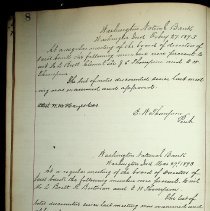 8
Washington National Bank
Washington Ind Feby 27, 1893
At a regular meeting of the board of directors of
said bank the following members were present to
wit L. C. Brett J. C. Thompson and E. W.
Thompson
The list of notes discounted since last meet
ing was examined and approved.
E. W. Thompson
Pres
Washington National Bank
Washington Ind Mar 27 1893
At a regular meeting of the board of directors of
said bank the following members were present to wit
L. C. Brett and E. W. Thompson
The list of
notes discounted since last meeting was examined and